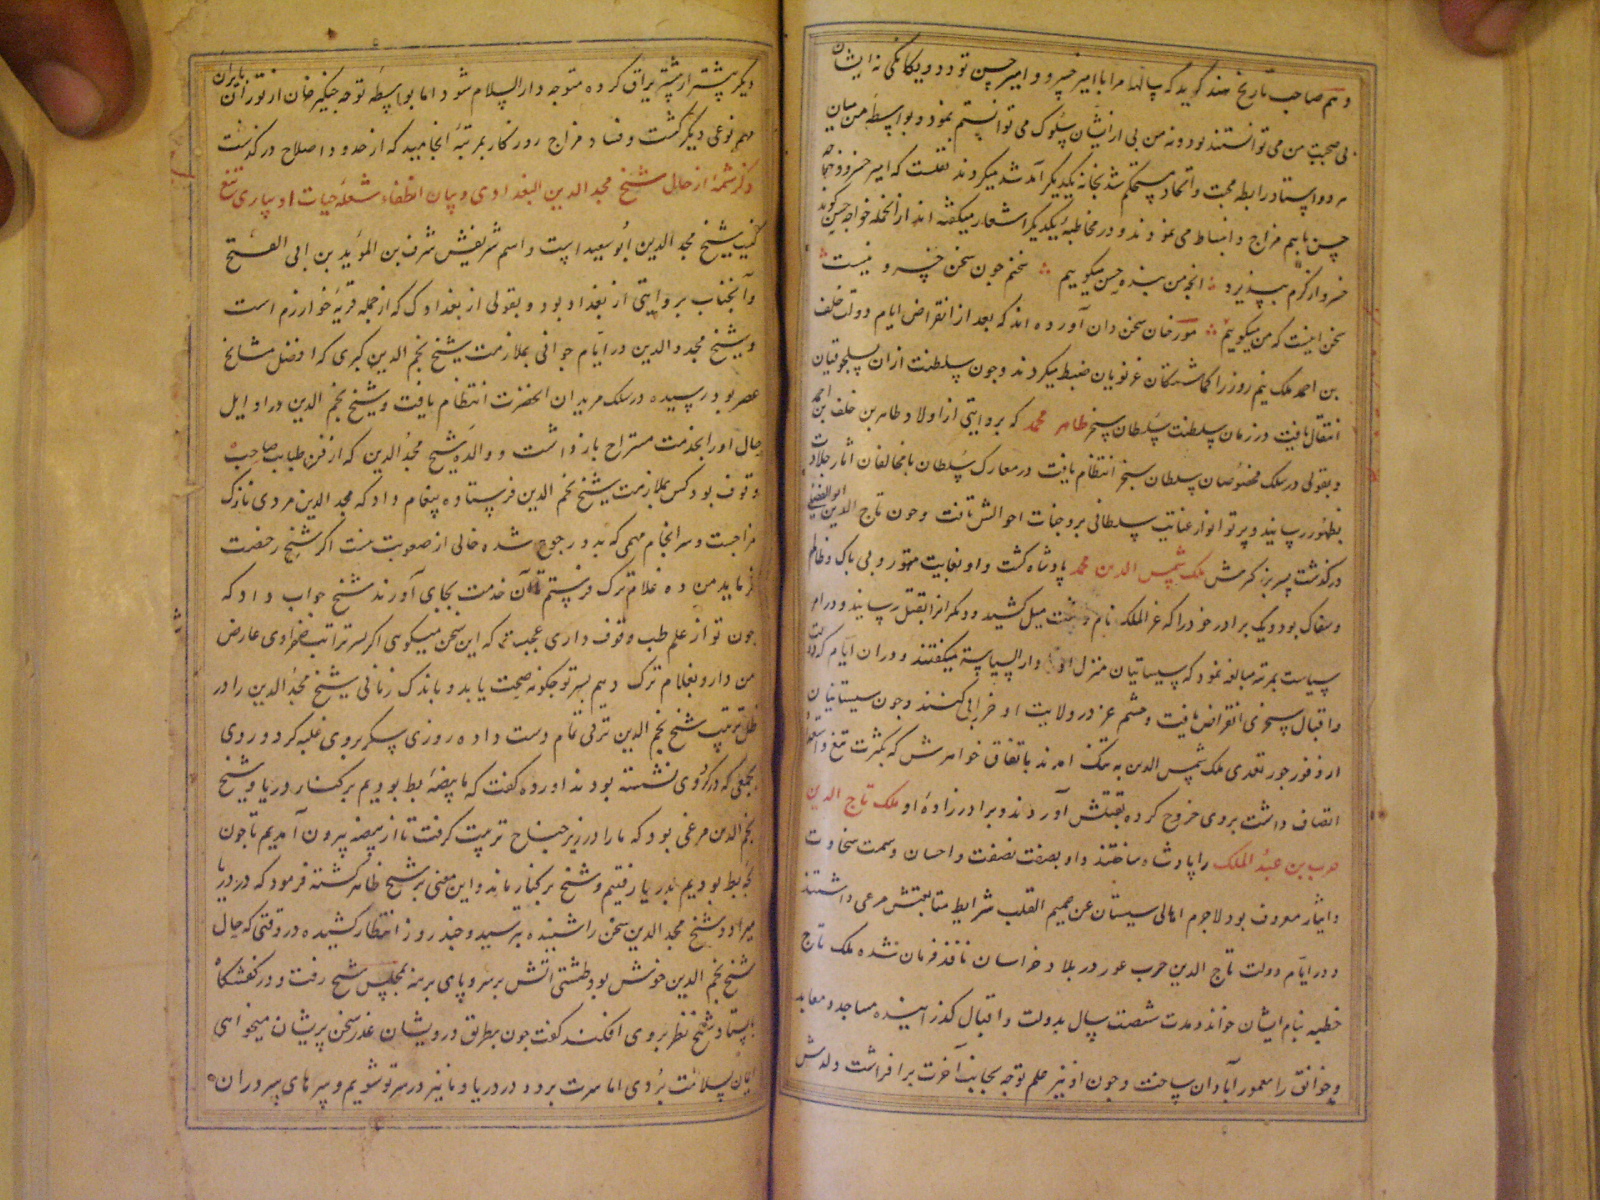 و هم صاحب تاریخ هند گوید که سالها مرا با امیر خسرو و امیر حسن تودد و یگانگی نه ایشان
بی صحبت من می توانستند بود و نه من بی ایشان سلوک می توانستم نمود و بواسطه من میان
هر دو استاد رابطه محبت و اتحاد مستحکم شد بخانه یکدیگر آمد شد میکردند نقلست که امیر خسرو و خواجه
حسن باهم مزاح و انبساط می نمودند و در مخاطبه یکدیگر اشعار میگفته اند از انجمله خواجه حسن گوید
خسرو از کرم بپذیرد انچه من بنده حسن میگویم سخنم چون سخن خسرو نیست
سخن اینست که من میگویم مورخان سخن دان آورده اند که بعد از انقراض ایام دولت خلف
بن احمد ملک نیمروز را گماشتگان غزنویان ضبط میکردند و چون سلطنت از ان سلجوقیان
انتقال یافت در زمان سلطنت سلطان سنجر طاهر محمد که بروایتی از اولاد طاهر بن خلف بن احمد
و بقولی در سلک مخصوصان سلطان سنجر انتظام یافت در معارک سلطان با مخالفان اثار جلادت
بظهور رسانید و پرتو انوار عنایت سلطانی بر وجنات احوالش تافت و چون تاج الدین ابوالفضل
درگذشت پسر بزرگترش ملک شمس الدین محمد پادشاه گشت و او بغایت متهور و بی باک و ظالم
و سفاک بود و یک برادر خود را که عز الملک نام داشت میل کشید و دیگرانرا بقتل رسانید و در امر
سیاست بمرتبه مبالغه نمود که سیستانیان منزل او را دار السیاسة میگفتند و در ان ایام که دولت
و اقبال سنجری انقراض یافت و حشم غز در ولایت او خرابی کنند و چون سیستانیان
از وفور جور تعدی ملک شمس الدین به تنگ امدند باتفاق خواهرش که بکثرت تیغ و استعداد
اتصاف داشت بروی خروج کرده بقتلش آوردند و برادرزاده او ملک تاج الدین
حرب بن عبد الملک را پادشاه ساختند و او بصفت نصفت و احسان و سمت سخاوت
و ایثار معروف بود لاجرم اهالی سیستان عن صمیم القلب شرایط متابعتش مرعی داشتند
و در ایام دولت تاج الدین حرب غور در بلاد خراسان نافذ فرمان شده ملک تاج
خطبه بنام ایشان خواند و مدت شصت سال بدولت و اقبال گذرانیده مساجد و معابد
و خوانق را معمور آبادان ساخت و چون او نیز علم توجه بجانب آخرت برافراشت ولدش
دیگر بیشتر از پیشتر یراق کرده متوجه دار السلام شود اما بواسطه توجه چنگیز خان از توران بایران
مهم نوعی دیگر گشت و فساد مزاج روزگار بمرتبه انجامید که از حدود اصلاح درگذشت
ذکر شمه از حال شیخ مجد الدین البغدادی و بیان انطفاء شعله حیات او بیاری تیغ
کنیت شیخ مجد الدین ابو سعید است و اسم شریفش شرف بن المؤید بن ابی الفتح
و آنجناب بروایتی از بغداد بود و بقولی از بغدادک که از جمله قریه خوارزم است
و شیخ مجد الدین در ایام جوانی بملازمت شیخ نجم الدین کبری که افضل مشایخ
عصر بود رسیده در سلک مریدان انحضرت انتظام یافت و شیخ نجم الدین در اوایل
حال او را بخدمت مستراح بازداشت و والده شیخ مجد الدین که از فن طبابت صاحب
وقوف بود کس بملازمت شیخ نجم الدین فرستاده پیغام داد که مجد الدین مردی نازک
مزاجست و سرانجام مهمی که بدو رجوع شده خالی از صعوبت نیست اگر شیخ رخصت
فرماید من ده غلام ترک فرستم تا آن خدمت بجای آورند شیخ جواب داد که
چون تو از علم طب وقوف داری عجبست که این سخن میگوئی اگر پسر ترا تب صفراوی عارض
من دارو بغلام ترک دهم پسر تو چگونه صحت یابد و باندک زمانی شیخ مجد الدین را در
ظل تربیت شیخ نجم الدین ترقی تمام دست داده روزی سکر بروی غلبه کرد و روی
بجمعی که در گردوی نشسته بودند اورده گفت که ما بیضه بط بودیم بر کنار دریا و شیخ
نجم الدین مرغی بود که ما را در زیر جناح تربیت گرفت تا از بیضه بیرون آمدیم تا چون
بچه بط بودیم بدریا رفتیم و شیخ بر کنار ماند و این معنی بر شیخ ظاهر گشته فرمود که در دریا
میراد و شیخ مجد الدین سخن را شنیده بترسید و چند روز انتظار کشیده در وقتی که حال
شیخ نجم الدین خوش بود طشتی اتش بر سر و پای برهنه بمجلس شیخ رفت و در کفشگاه
بایستاد شیخ نظر بروی افکند گفت چون بطریق درویشان عذر سخن پریشان میخواهی
ایمان بسلامت بردی اما سرت برود در دریا و ما نیز در سر تو شویم و سرهای سروران